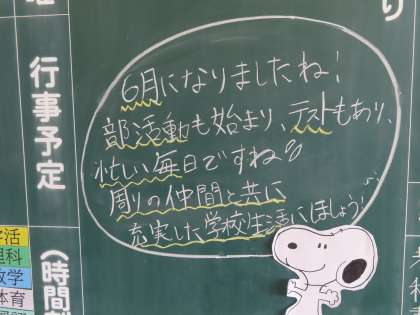 行事予定
6月になりましたね!
部活動も始まり、テストもあり、
忙しい毎日ですね
周りの仲間と共に
充実した学校生活にほしょう!
(時間割
学活
理科
数学
体育
り